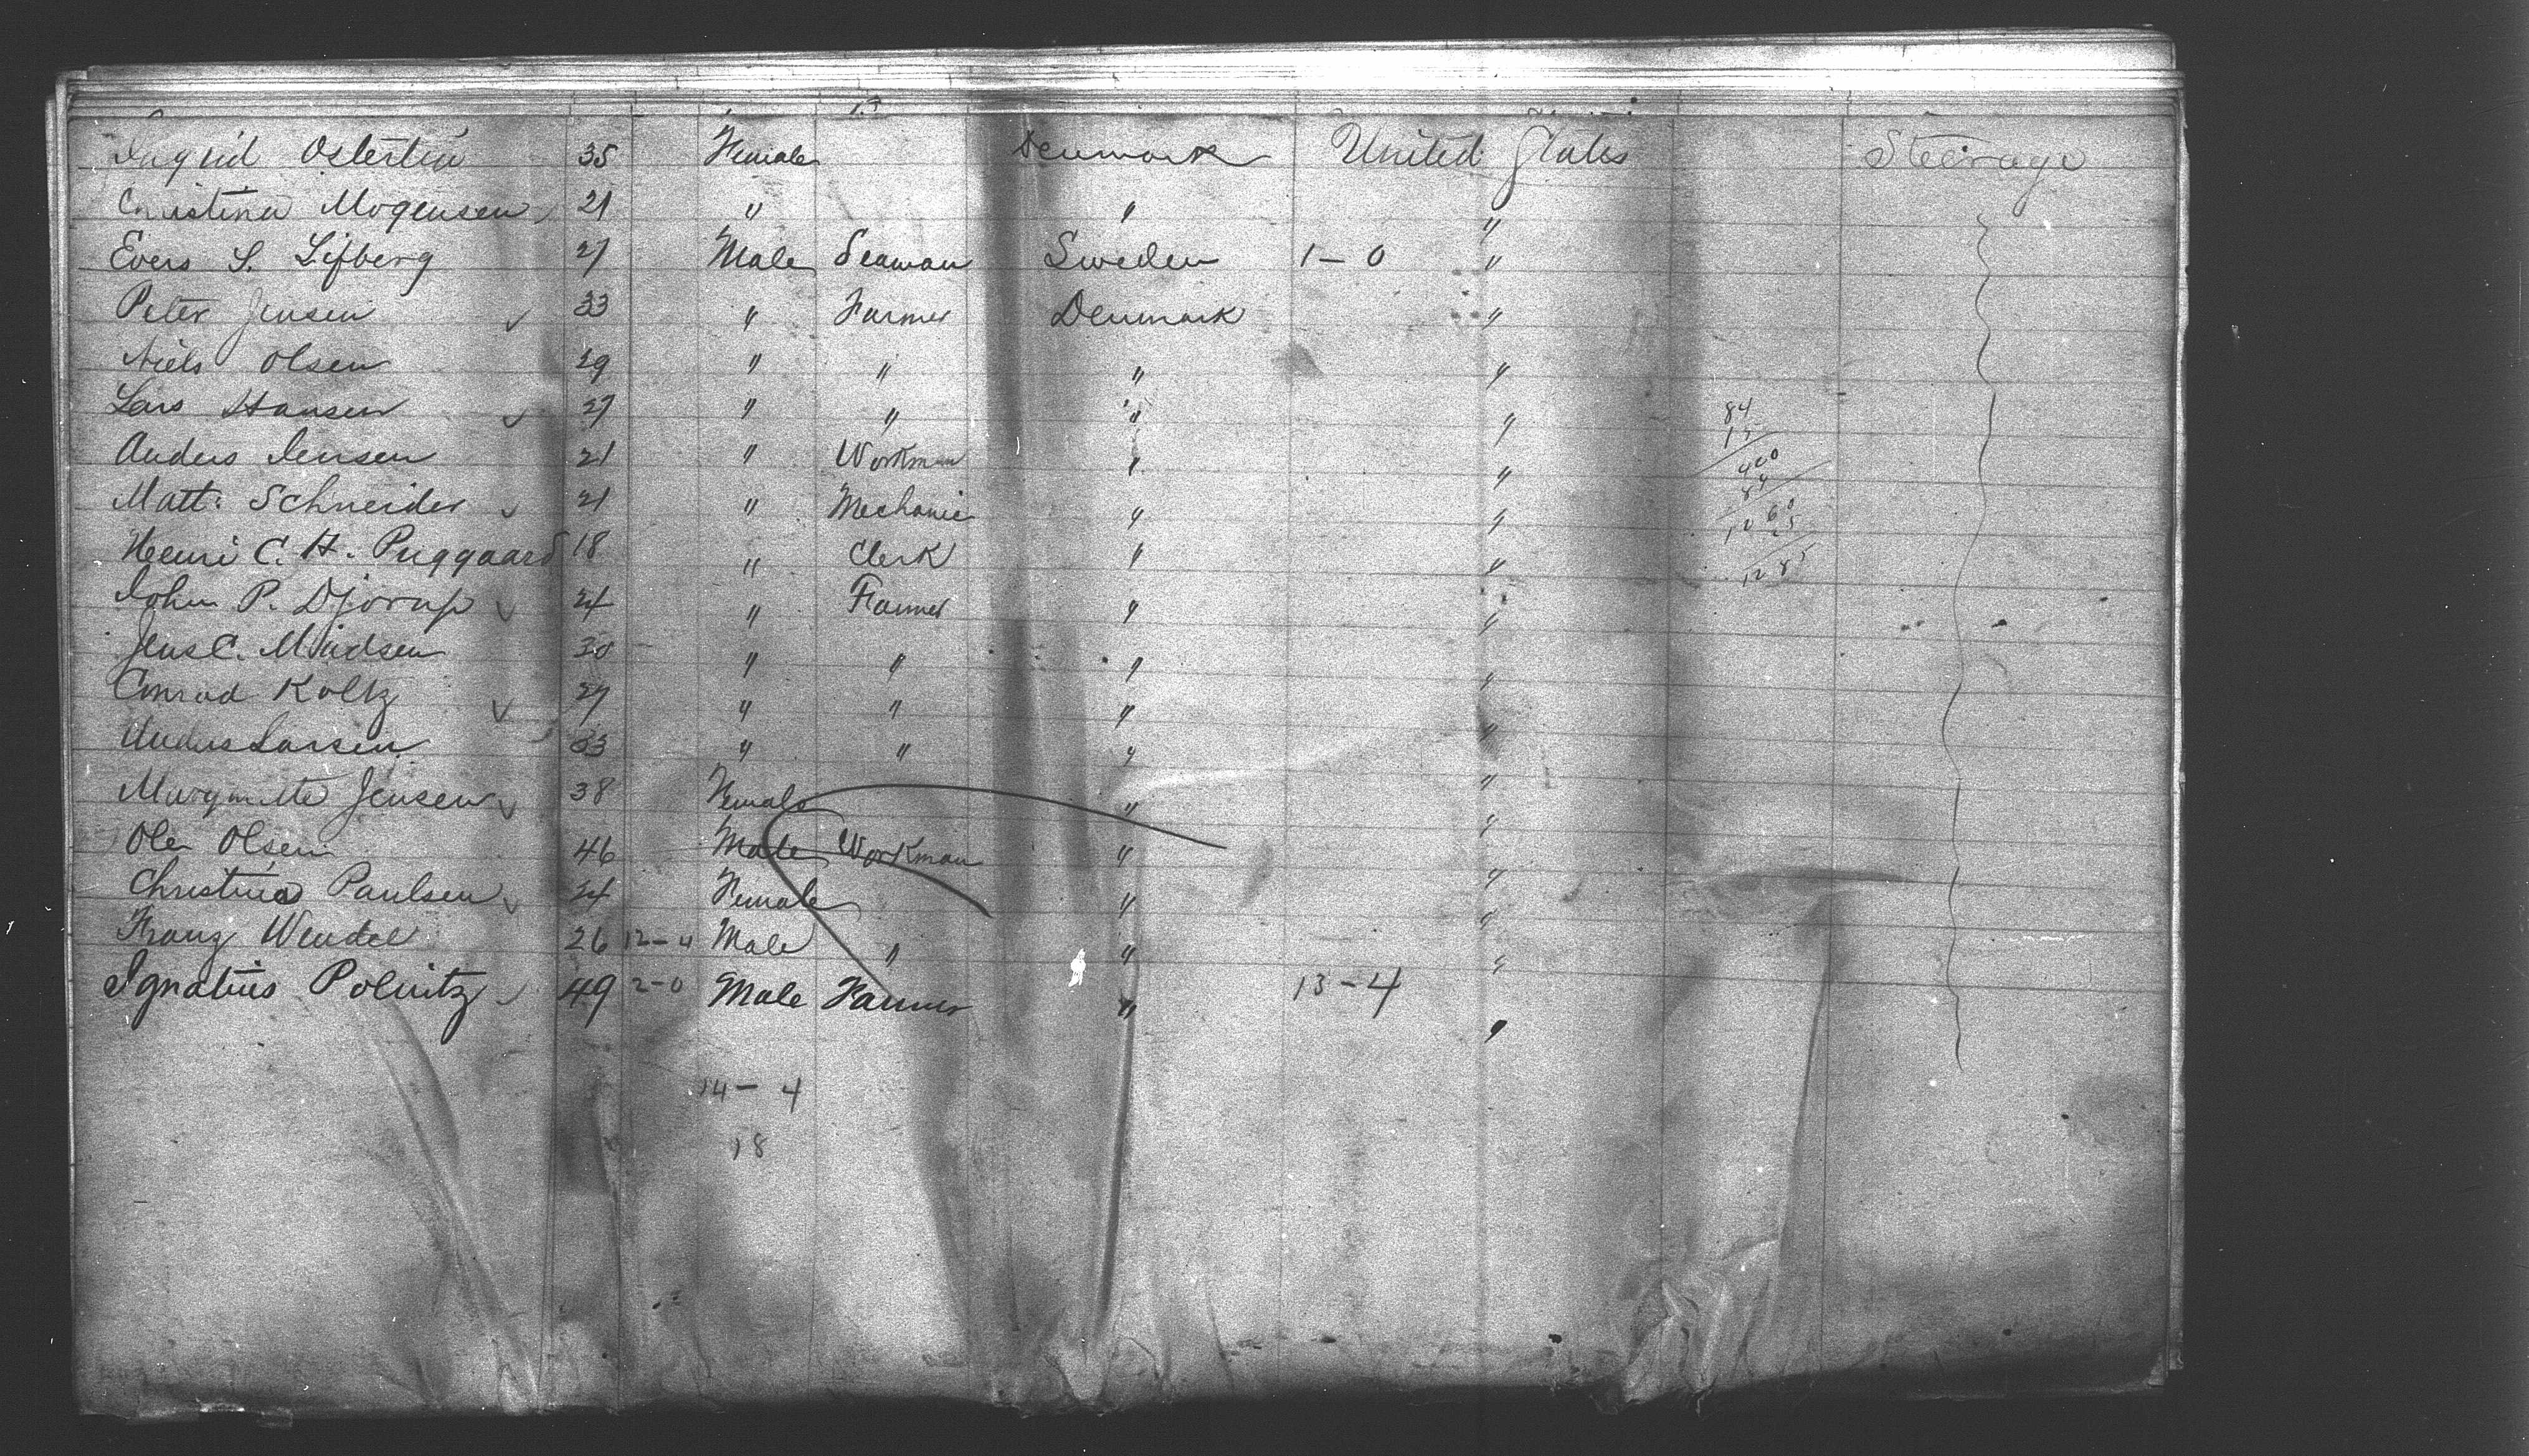 Ingrid Osterlin 35 Female Denmark United States Steerage
Christina Mogensen 21 " " "
Evers S. Lifberg 27 Male Seaman Sweden 1-0 "
Peter Jensen ✓ 33 " Farmer Denmark "
Niels Olsen 29 " " " "
Lars Hansen ✓ 27 " " " "
Anders Jensen 21 " Workman " "
Matt: Schneider ✓ 21 " Mechanic " "
Henri C. H. Puggaard 18 " Clerk " "
John P. Djorup ✓ 24 " Farmer " "
Jens C. Madsen 30 " " " "
Conrad Koltz ✓ 27 " " " "
Anders Larsen 33 " " " "
Margrette Jensen ✓ 38 Female " "
Ole Olsen 46 Male Workman " "
Christina Paulsen ✓ 24 Female " "
Franz Wendel 26 12-4 Male " " "
Ignatius Polnitz ✓ 49 2-0 Male Farmer " 13-4 "
14-4
18
84
15
400
84
1260
25
1285